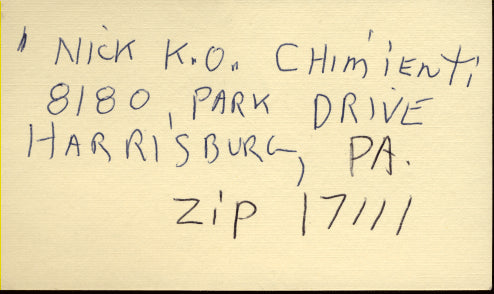 " NICK K.O. CHIMIENTI
8180, PARK DRIVE
HARRISBURG, PA.
ZIP 17111